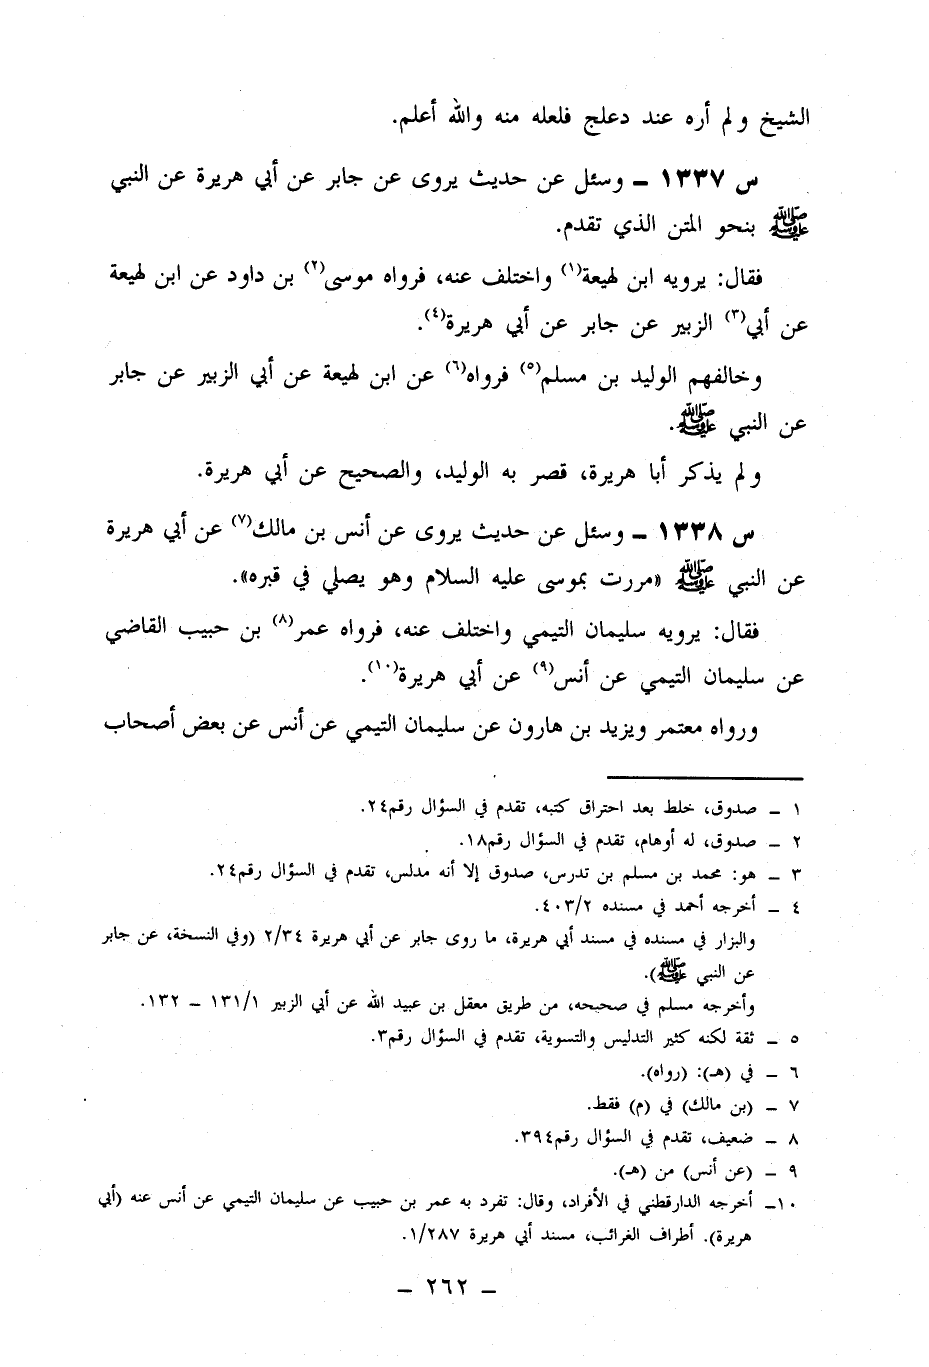 الشيخ ولم أره عند دعلج فلعله منه والله أعلم.
س ١٣٣٧ ـ وسئل عن حديث يروى عن جابر عن أبي هريرة عن النبي
ﷺ بنحو المتن الذي تقدم.
فقال: يرويه ابن لهيعة(١) واختلف عنه، فرواه موسى(٢) بن داود عن ابن لهيعة
عن أبي(٣) الزبير عن جابر عن أبي هريرة(٤).
وخالفهم الوليد بن مسلم(٥) فرواه(٦) عن ابن لهيعة عن أبي الزبير عن جابر
عن النبي ﷺ.
ولم يذكر أبا هريرة، قصر به الوليد، والصحيح عن أبي هريرة.
س ١٣٣٨ ـ وسئل عن حديث يروى عن أنس بن مالك(٧) عن أبي هريرة
عن النبي ﷺ «مررت بموسى عليه السلام وهو يصلي في قبره».
فقال: يرويه سليمان التيمي واختلف عنه، فرواه عمر(٨) بن حبيب القاضي
عن سليمان التيمي عن أنس(٩) عن أبي هريرة(١٠).
ورواه معتمر ويزيد بن هارون عن سليمان التيمي عن أنس عن بعض أصحاب
١ ـ صدوق، خلط بعد احتراق كتبه، تقدم في السؤال رقم٢٤.
٢ ـ صدوق، له أوهام، تقدم في السؤال رقم١٨.
٣ ـ هو: محمد بن مسلم بن تدرس، صدوق إلا أنه مدلس، تقدم في السؤال رقم٢٤.
٤ ـ أخرجه أحمد في مسنده ٤٠٣/٢.
والبزار في مسنده في مسند أبي هريرة، ما روى جابر عن أبي هريرة ٢/٣٤ (وفي النسخة، عن جابر
عن النبي ﷺ).
وأخرجه مسلم في صحيحه، من طريق معقل بن عبيد الله عن أبي الزبير ١٣١/١ ـ ١٣٢.
٥ ـ ثقة لكنه كثير التدليس والتسوية، تقدم في السؤال رقم٣.
٦ ـ في (هـ): (رواه).
٧ ـ (بن مالك) في (م) فقط.
٨ ـ ضعيف، تقدم في السؤال رقم٣٩٤.
٩ ـ (عن أنس) من (هـ).
١٠ـ أخرجه الدارقطني في الأفراد، وقال: تفرد به عمر بن حبيب عن سليمان التيمي عن أنس عنه (أبي
هريرة). أطراف الغرائب، مسند أبي هريرة ١/٢٨٧.
ـ ٢٦٢ ـ